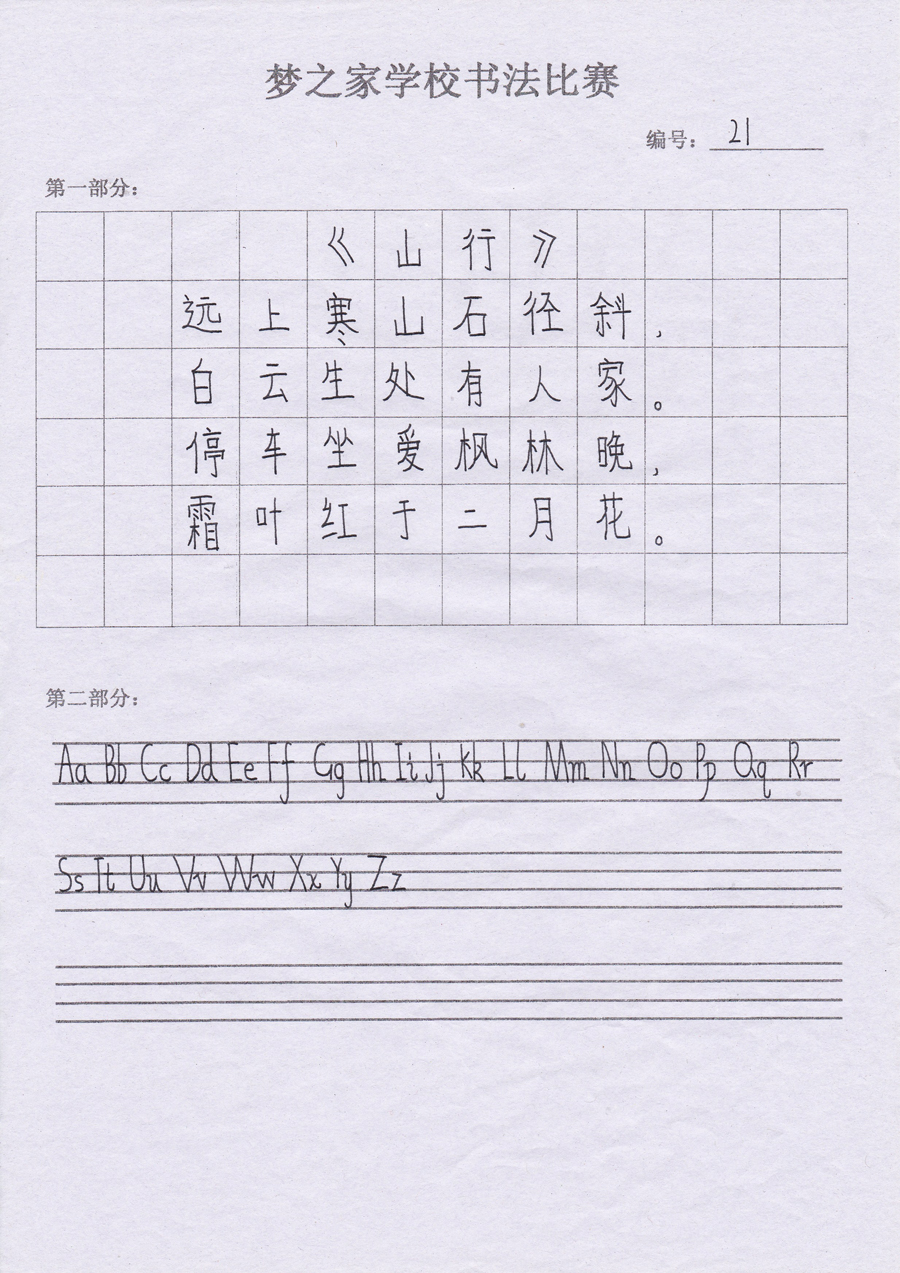 梦之家学校书法比赛
编号：21
第一部分：
《山行》
远上寒山石径斜，
白云生处有人家。
停车坐爱枫林晚，
霜叶红于二月花。
第二部分：
Aa Bb Cc Dd Ee Ff Gg Hh Ii Jj Kk Ll Mm Nn Oo Pp Qq Rr
Ss Tt Uu Vv Ww Xx Yy Zz